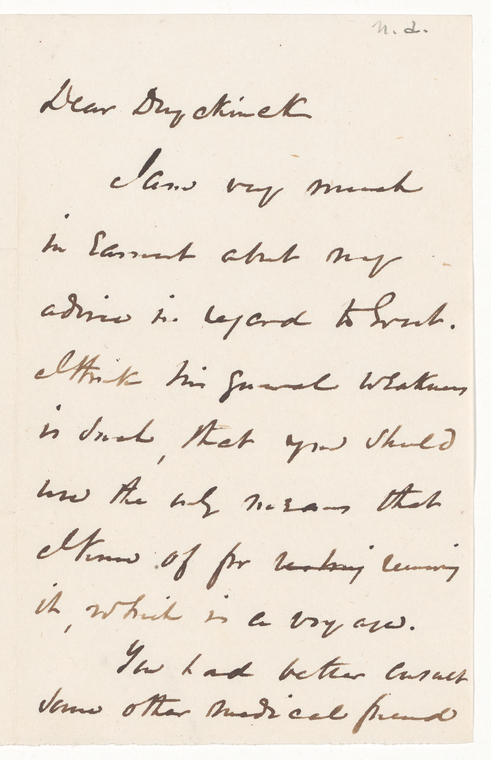 n.d.
Dear Duyckinck
I am very much
in Earnest about my
advice in regard to
I think his general weakness
is such, that you should
use the only means that
I know of for removing
it, which is a voyage.
You had better consult
some other medical friend